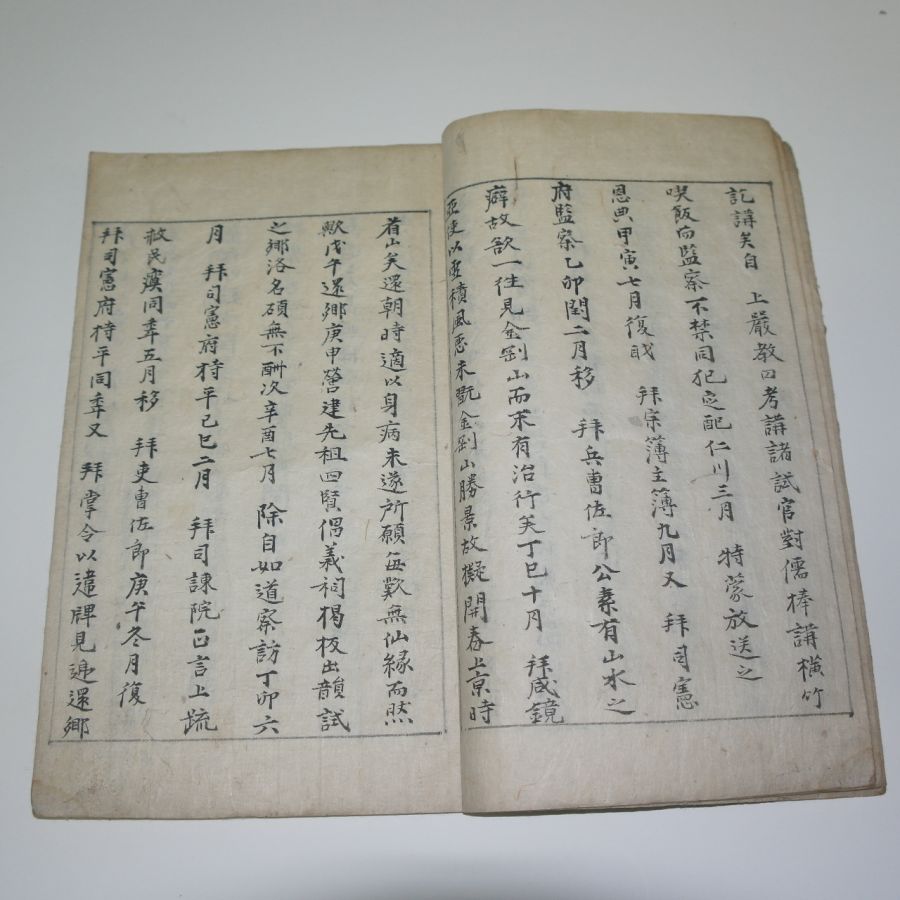 記講矣自 上嚴敎曰考講諸試官對儒棒講橫竹
喫飯而監察不禁同犯定配仁川三月 特蒙放送之
恩典甲寅七月復職 拜宗簿主簿九月又 拜司憲
府監察乙卯閏二月移 拜兵曹佐郎公素有山水之
癖故欲一徃見金剛山而求有治行矣丁巳十月 拜咸鏡
亞使以 積風 未 金剛山勝景故擬開春上京時
看山矣還朝時適以身病未遂所願每歎無仙緣而然
歟戊午還鄉庚申營建先祖四賢偶義祠揭板出韻試
之鄉洛名碩無不酬次辛酉七月 除自如道察訪丁卯六
月 拜司憲府持平己巳二月 拜司諫院正言上疏
救民瘼同年五月移 拜吏曹佐郎庚午冬月復
拜司憲府持平同年又 拜掌令以違牌見递還鄉